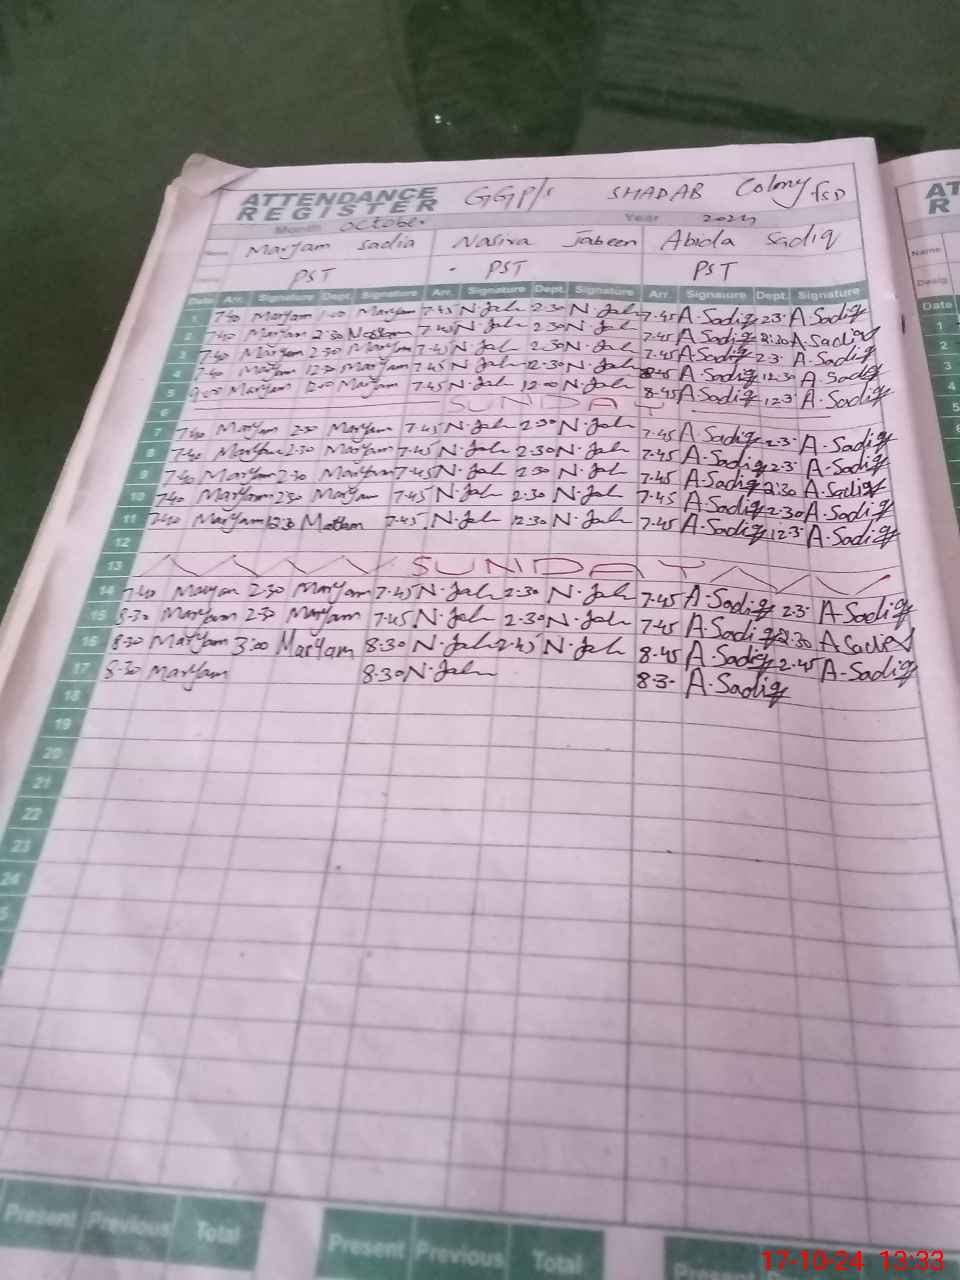 ATTENDANCE REGISTER GGP/s SHADAB Colony fsd
Month October Year 2024
Name Maryam Sadia Nasira Jabeen Abida Sadiq
PST PST PST
Date Arr. Signature Dept. Signature Arr. Signature Dept. Signature Arr. Signature Dept. Signature
1 7-40 Maryam 1-00 Maryam 7-45 N-Jab 2-30 N-Jab 7-45 A-Sadiq 2-3- A-Sadiq
2 7-40 Maryam 2-30 7-45 N-Jab 2-30 N-Jab 7-45 A-Sadiq 2-30 A-Sadiq
3 7-40 Maryam 2-30 Maryam 7-45 N-Jab 2-30 N-Jab 7-45 A-Sadiq 2-3- A-Sadiq
4 7-40 Maryam 12-30 Maryam 7-45 N-Jab 12-30 N-Jab A-Sadiq 12-30 A-Sadiq
5 Maryam 12-00 Maryam 7-45 N-Jab 12-00 N-Jab 8-45 A-Sadiq 12-3- A-Sadiq
6 SUNDAY
7 7-40 Maryam 2-30 Maryam 7-45 N-Jab 2-30 N-Jab 7-45 A-Sadiq 2-3- A-Sadiq
8 7-40 Maryam 2-30 Maryam 7-45 N-Jab 2-30 N-Jab 7-45 A-Sadiq 2-3- A-Sadiq
9 7-40 Maryam 2-30 Maryam 7-45 N-Jab 2-30 N-Jab 7-45 A-Sadiq 2-30 A-Sadiq
10 7-40 Maryam 2-30 Maryam 7-45 N-Jab 2-30 N-Jab 7-45 A-Sadiq 2-30 A-Sadiq
11 7-40 Maryam 12-30 Maryam 7-45 N-Jab 12-30 N-Jab 7-45 A-Sadiq 12-3- A-Sadiq
12
13 SUNDAY
14 7-40 Maryam 2-30 Maryam 7-45 N-Jab 2-30 N-Jab 7-45 A-Sadiq 2-3- A-Sadiq
15 8-30 Maryam 2-30 Maryam 7-45 N-Jab 2-30 N-Jab 7-45 A-Sadiq 2-30 A-Sadiq
16 8-30 Maryam 3-00 Maryam 8-30 N-Jab 2-45 N-Jab 8-45 A-Sadiq 2-45 A-Sadiq
17 8-30 Maryam 8-30 N-Jab 8-3- A-Sadiq
18
19
20
21
22
23
24
5
Present Previous Total Present Previous Total Present
AT
R
Name
Desig
Date
1
2
3
4
5
6
17-10-24 13:33